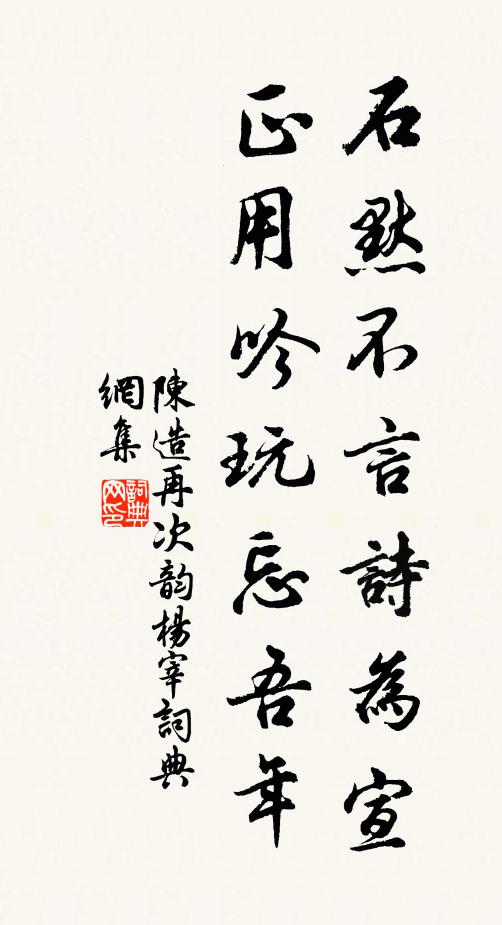 石默不言詩為宣
正用吟玩忘吾年
陳造再次韵楊宰詞典
網集
詞典網印